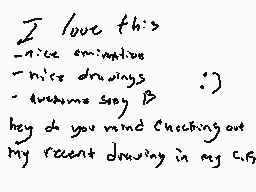 I love this
- nice animation
- nice drawings :)
- awesome song B
hey do you mind checking out
my recent drawing in my C.R